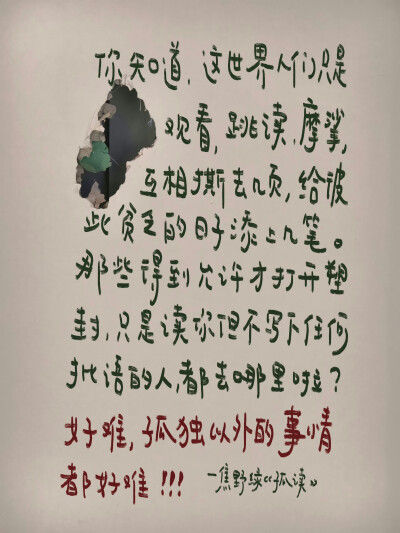 你知道,这世界人们只是
观看,跳读,摩挲,
互相撕去几页,给彼
此贫乏的日子添上几笔。
那些得到允许才打开塑
封,只是读你但不写下任何
批语的人,都去哪里啦?
好难,孤独以外的事情
都好难!!!
—焦野绿《孤读》